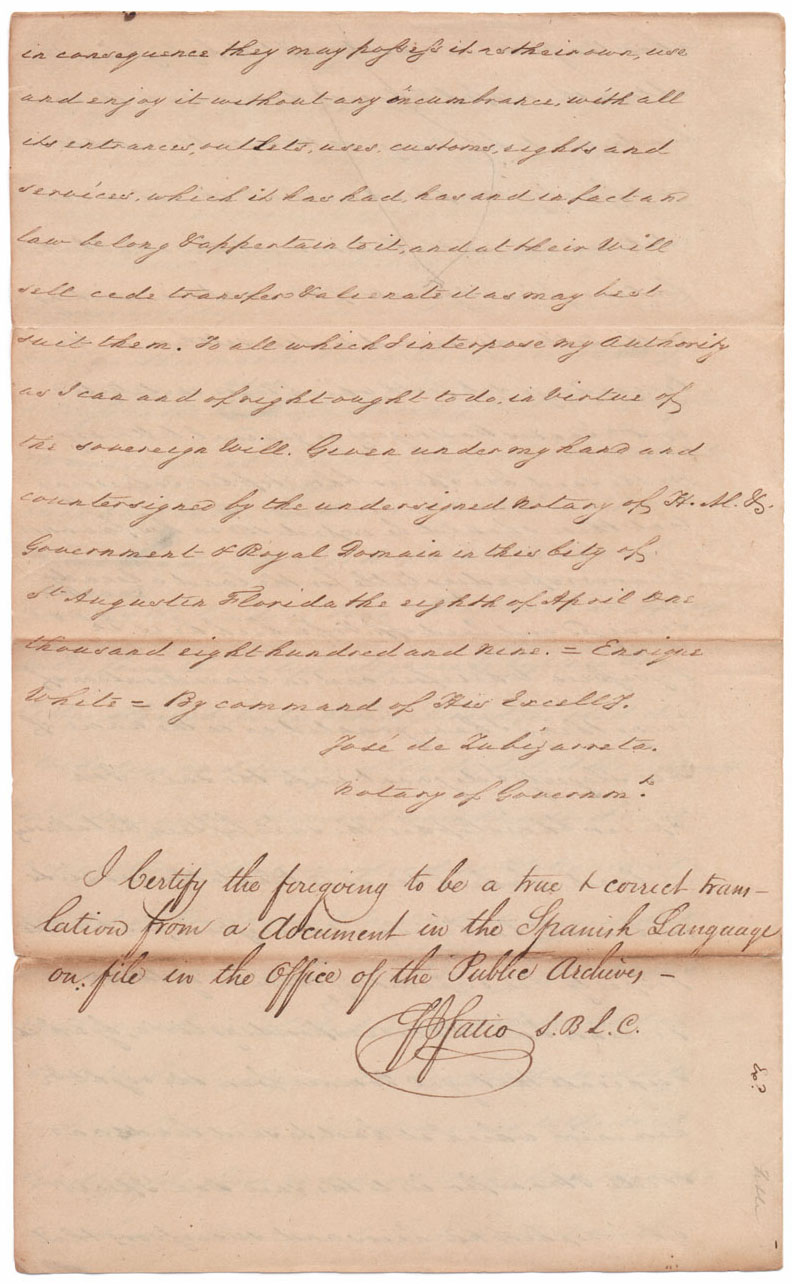 in consequence they may possess it as their own, use
and enjoy it without any incumbrance, with all
its entrances, outlets, uses, customs, rights and
services, which it has had, has and in fact and
law belong & appertain to it, and at their Will
sell cede transfer & alienate it as may best
suit them. To all which I interpose my Authority
as I can and of right ought to do, in Virtue of
the sovereign Will. Given under my hand and
countersigned by the undersigned Notary of H. M. &c.
Government & Royal Domain in this City of
St Augustin Florida the eighth of April One
thousand eight hundred and nine. = Enrique
White = By command of His Excelly.
José de Zubizarreta.
Notary of Governmt.
I Certify the foregoing to be a true & correct trans-
lation from a document in the Spanish Language
on file in the Office of the Public Archives -
F J Fatio S. B L. C.